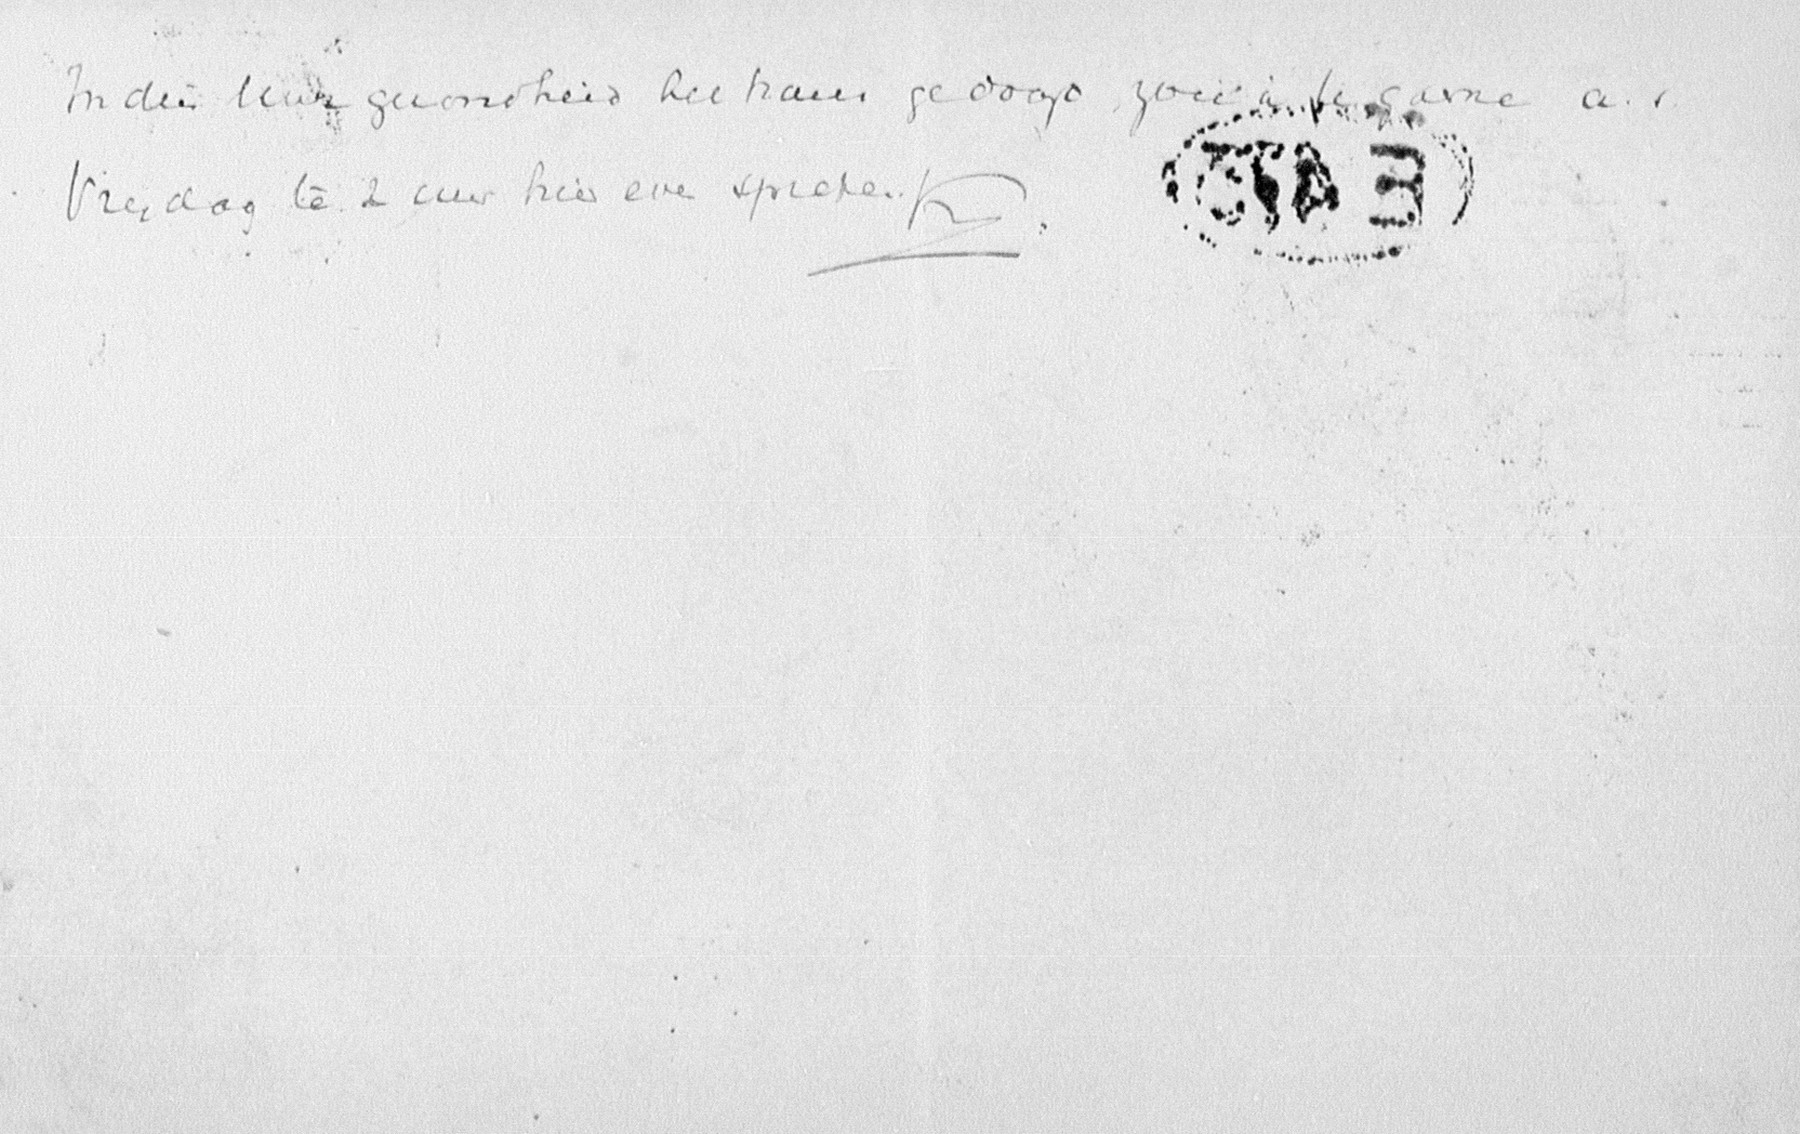 Indien Uwe gezondheid het thans gedoogt, zou ik U gaarne a.s.
Vrijdag te 2 uur hier even spreken. K.